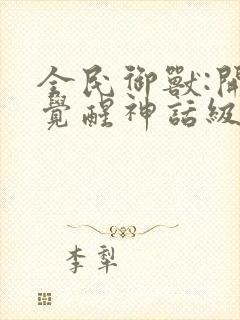 全民御獸:開
覺醒神話級
李犁